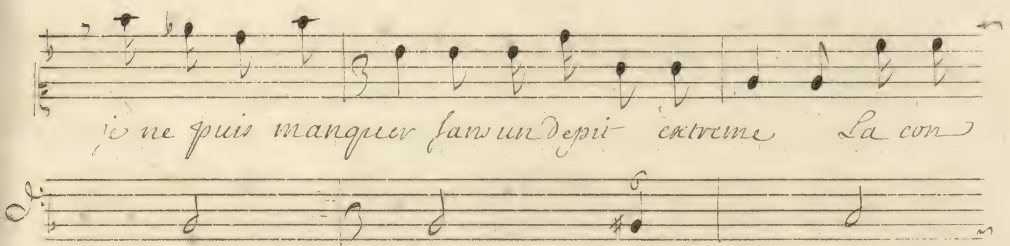 je ne puis manquer sans un depit extreme La con